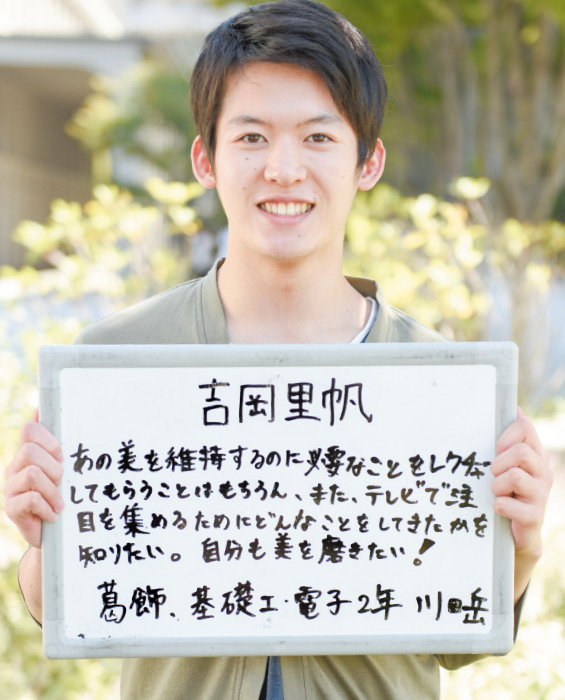 吉岡里帆
あの美を維持するのに必要なことをレクチャー
してもらうことはもちろん、また、テレビで注
目を集めるためにどんなことをしてきたかを
知りたい。自分も美を磨きたい!
葛飾、基礎工・電子2年 川田岳